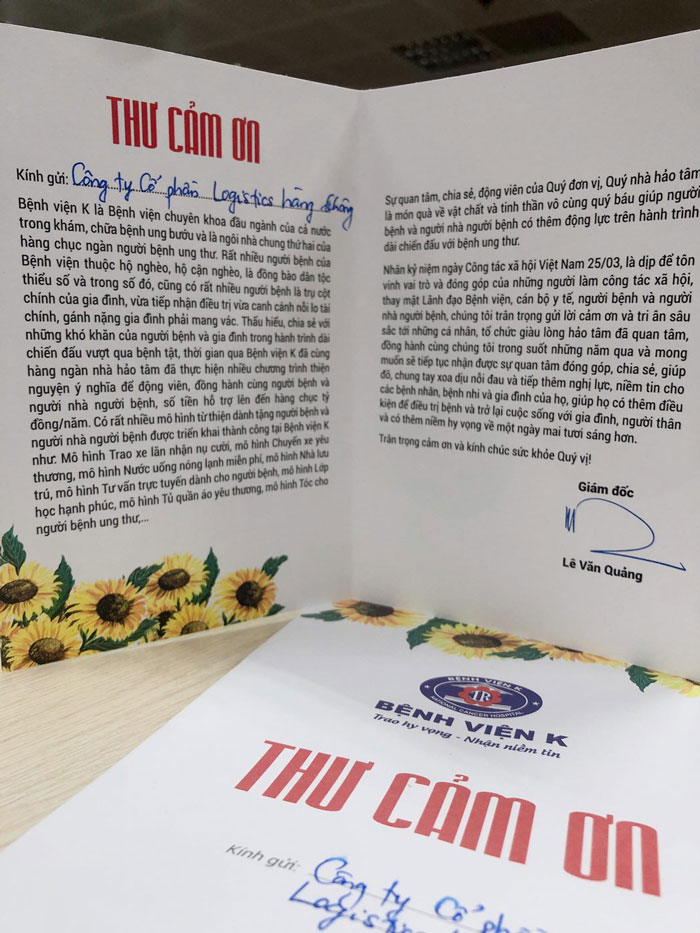 THƯ CẢM ƠN
Kính gửi: Công ty Cổ phần Logistics hàng không
Bệnh viện K là Bệnh viện chuyên khoa đầu ngành của cả nước
trong khám, chữa bệnh ung bướu và là ngôi nhà chung thứ hai của
hàng chục ngàn người bệnh ung thư. Rất nhiều người bệnh của
Bệnh viện thuộc hộ nghèo, hộ cận nghèo, là đồng bào dân tộc
thiểu số và trong số đó, cũng có rất nhiều người bệnh là trụ cột
chính của gia đình, vừa tiếp nhận điều trị vừa canh cánh nỗi lo tài
chính, gánh nặng gia đình phải mang vác. Thấu hiểu, chia sẻ với
những khó khăn của người bệnh và gia đình trong hành trình dài
chiến đấu vượt qua bệnh tật, thời gian qua Bệnh viện K đã cùng
hàng ngàn nhà hảo tâm đã thực hiện nhiều chương trình thiện
nguyện ý nghĩa để động viên, đồng hành cùng người bệnh và
người nhà người bệnh, số tiền hỗ trợ lên đến hàng chục tỷ
đồng/năm. Có rất nhiều mô hình từ thiện dành tặng người bệnh và
người nhà người bệnh được triển khai thành công tại Bệnh viện K
như: Mô hình Trao xe lăn nhận nụ cười, mô hình Chuyến xe yêu
thương, mô hình Nước uống nóng lạnh miễn phí, mô hình Nhà lưu
trú, mô hình Tư vấn trực tuyến dành cho người bệnh, mô hình Lớp
học hạnh phúc, mô hình Tủ quần áo yêu thương, mô hình Tóc cho
người bệnh ung thư,...
Sự quan tâm, chia sẻ, động viên của Quý đơn vị, Quý nhà hảo tâm
là món quà về vật chất và tinh thần vô cùng quý báu giúp người
bệnh và người nhà người bệnh có thêm động lực trên hành trình
dài chiến đấu với bệnh ung thư.
Nhân kỷ niệm ngày Công tác xã hội Việt Nam 25/03, là dịp để tôn
vinh vai trò và đóng góp của những người làm công tác xã hội,
thay mặt Lãnh đạo Bệnh viện, cán bộ y tế, người bệnh và người
nhà người bệnh, chúng tôi trân trọng gửi lời cảm ơn và tri ân sâu
sắc tới những cá nhân, tổ chức giàu lòng hảo tâm đã quan tâm,
đồng hành cùng chúng tôi trong suốt những năm qua và mong
muốn sẽ tiếp tục nhận được sự quan tâm đóng góp, chia sẻ, giúp
đỡ, chung tay xoa dịu nỗi đau và tiếp thêm nghị lực, niềm tin cho
các bệnh nhân, bệnh nhi và gia đình của họ, giúp họ có thêm điều
kiện để điều trị bệnh và trở lại cuộc sống với gia đình, người thân
và có thêm niềm hy vọng về một ngày mai tươi sáng hơn.
Trân trọng cảm ơn và kính chúc sức khỏe Quý vị!
Giám đốc
Lê Văn Quảng
BỆNH VIỆN K
NATIONAL CANCER HOSPITAL
BỆNH VIỆN K
Trao hy vọng - Nhận niềm tin
THƯ CẢM ƠN
Kính gửi: Công ty Cổ phần
Logistics